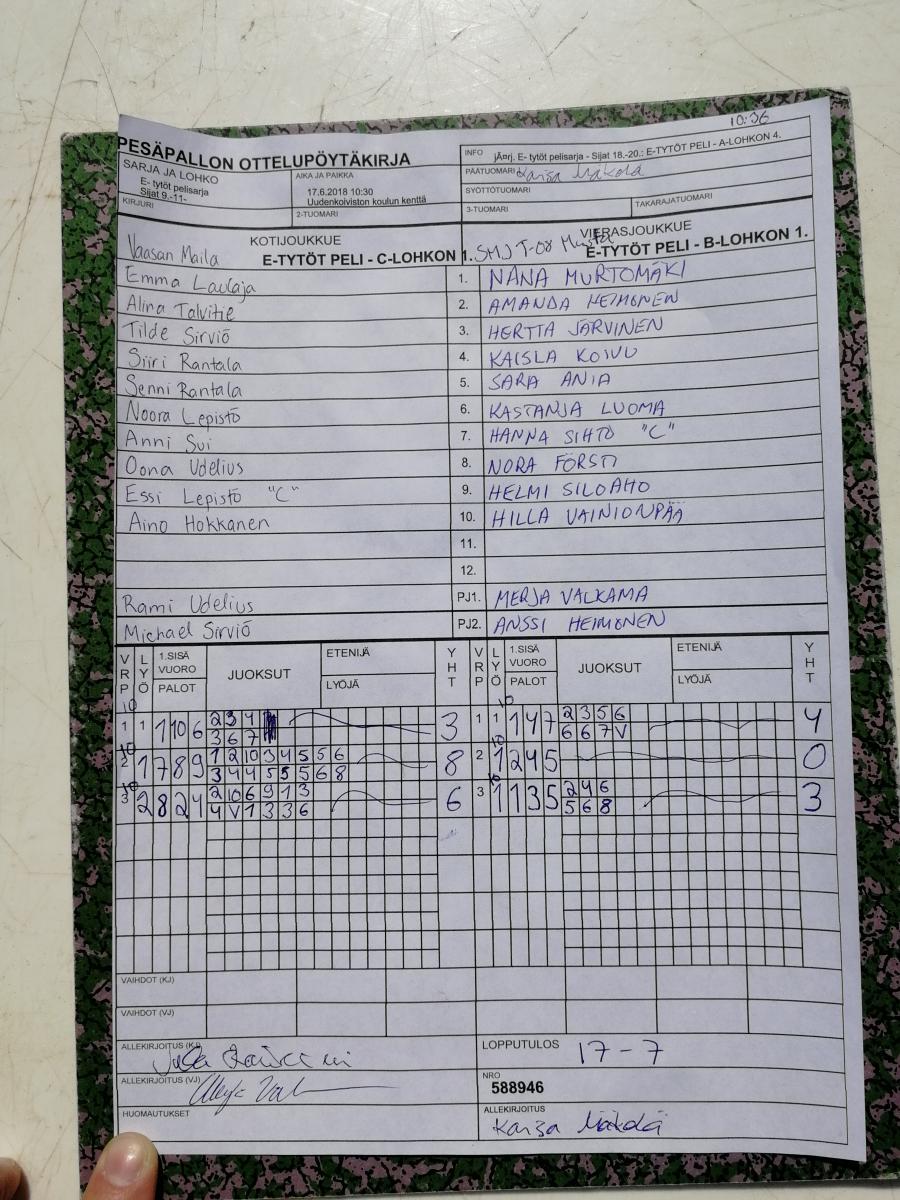 10:36
PESÄPALLON OTTELUPÖYTÄKIRJA
SARJA JA LOHKO
E- tytöt pelisarja
Sijat 9.-11-
AIKA JA PAIKKA
17.6.2018 10:30
Uudenkoiviston koulun kenttä
INFO jÄnrj. E- tytöt pelisarja - Sijat 18.-20.: E-TYTÖT PELI - A-LOHKON 4.
PÄÄTUOMARI Kaisa Mäkelä
SYÖTTÖTUOMARI
KIRJURI
2-TUOMARI
3-TUOMARI
TAKARAJATUOMARI
KOTIJOUKKUE
Vaasan Maila E-TYTÖT PELI - C-LOHKON 1.
VIERASJOUKKUE
SMJ T-08 Musta E-TYTÖT PELI - B-LOHKON 1.
Emma Laulaja 1. NANA MURTOMÄKI
Alina Talvitie 2. AMANDA HEIMONEN
Tilde Sirviö 3. HERTTA JÄRVINEN
Siiri Rantala 4. KAISLA KOIVU
Senni Rantala 5. SARA ANIA
Noora Lepistö 6. KASTANJA LUOMA
Anni Sui 7. HANNA SIHTO "C"
Oona Udelius 8. NORA FÖRSTI
Essi Lepistö "C" 9. HELMI SILOAHO
Aino Hokkanen 10. HILLA VAINIONPÄÄ
11.
12.
Rami Udelius PJ1. MERJA VALKAMA
Michael Sirviö PJ2. ANSSI HEIMONEN
VRP LYÖ 1.SISÄ VUORO PALOT JUOKSUT ETENIJÄ LYÖJÄ YHT VRP LYÖ 1.SISÄ VUORO PALOT JUOKSUT ETENIJÄ LYÖJÄ YHT
10 10
1 1 1 10 6 2 3 4 3 1 1 1 4 7 2 3 5 6 4
3 6 7 6 6 7 V
10 10
2 1 7 8 9 1 2 10 3 4 5 5 6 8 2 1 2 4 5 0
3 4 4 5 5 5 6 8
10 10
3 2 8 2 4 2 10 6 9 1 3 6 3 1 1 3 5 2 4 6 3
4 V 1 3 3 6 5 6 8
VAIHDOT (KJ)
VAIHDOT (VJ)
ALLEKIRJOITUS (KJ)
LOPPUTULOS 17-7
ALLEKIRJOITUS (VJ)
NRO
588946
HUOMAUTUKSET
ALLEKIRJOITUS
Kaisa Mäkelä